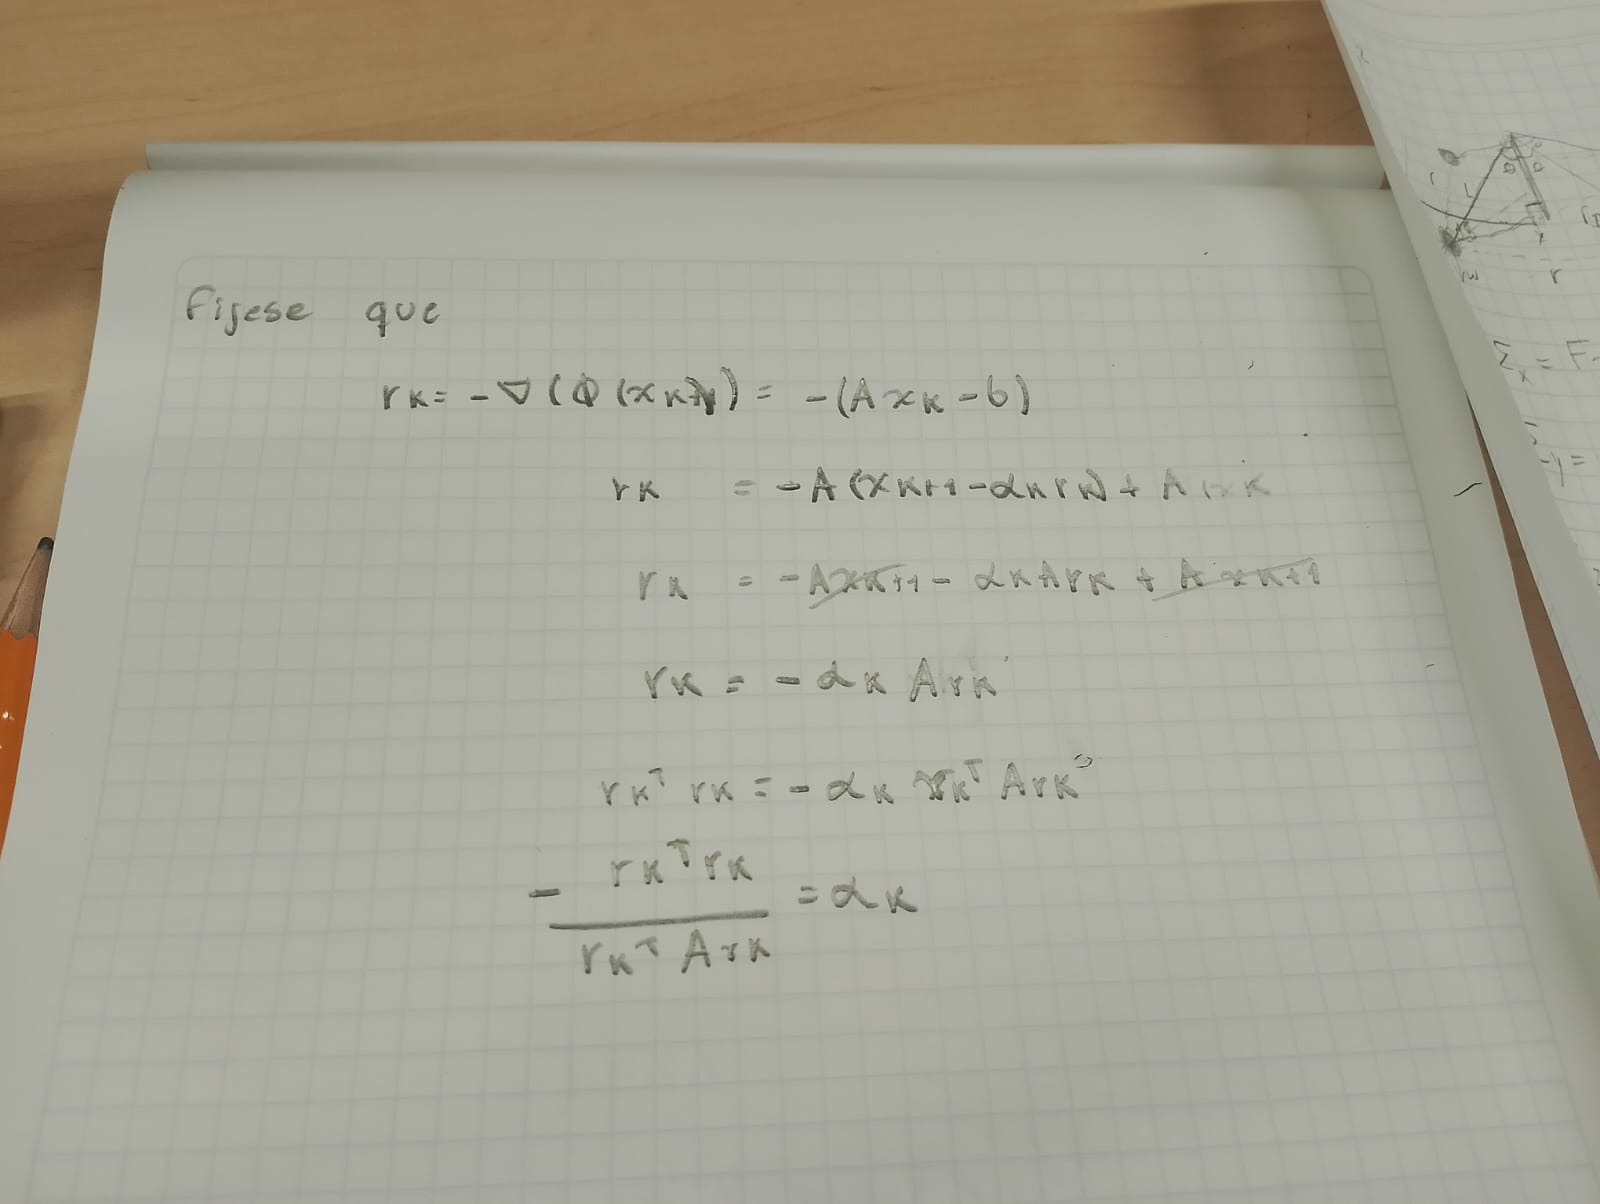 Fijese que
rk = -∇(Φ(xk)) = -(Axk - b)
rk = -A(xk+1 - αkrk) + A xk
rk = -Axk+1 - αkArk + Axk+1
rk = -αk Ark
rkᵀ rk = -αk rkᵀ Ark
- rkᵀrk = αk
rkᵀ Ark
Σx = F
-y =
r